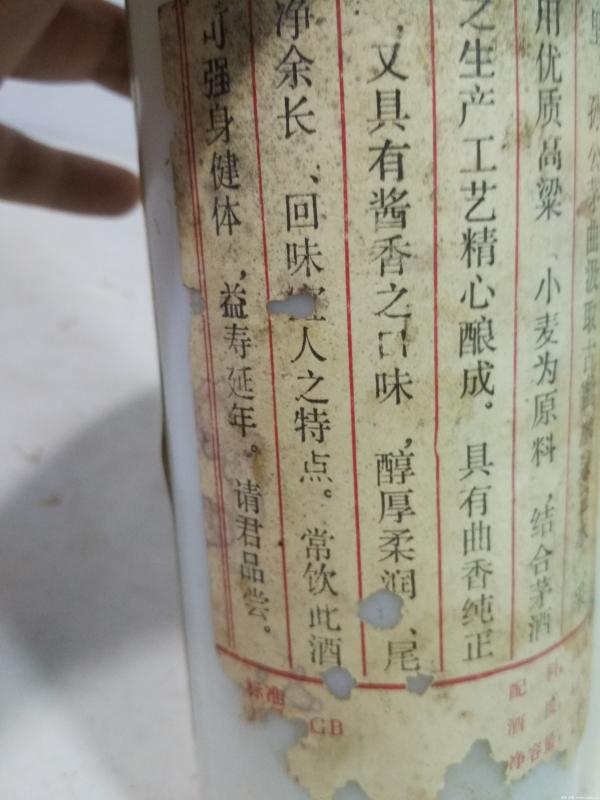 孙公茅曲汲取古
用优质高粱、小麦为原料，结合茅酒
之生产工艺精心酿成。具有曲香纯正
，又具有酱香之口味，醇厚柔润、尾
净余长、回味宜人之特点。常饮此酒
可强身健体，益寿延年。请君品尝。
配料
酒度
净容量
标准
GB